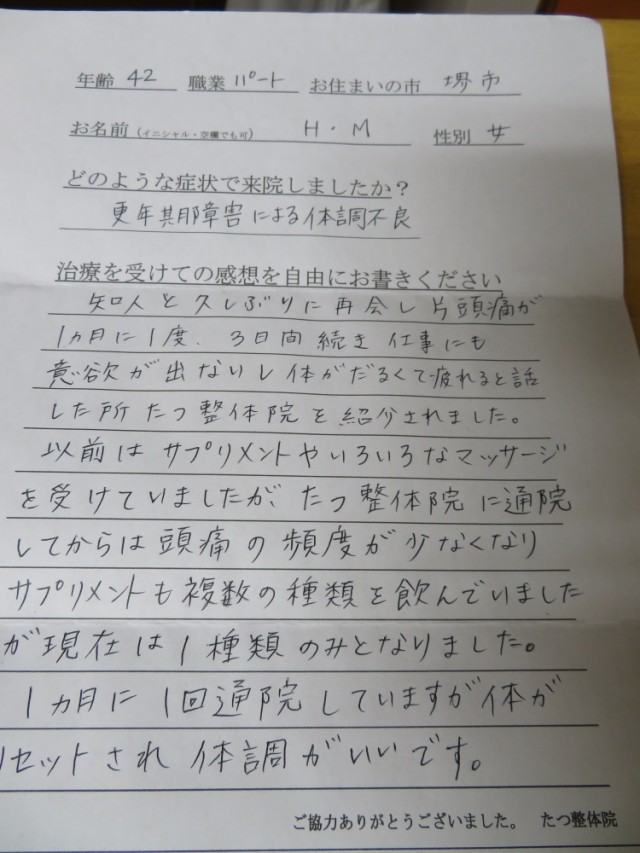 年齢 42 職業 パート お住まいの市 堺市
お名前（イニシャル・空欄でも可） H・M 性別 女
どのような症状で来院しましたか？
更年期障害による体調不良
治療を受けての感想を自由にお書きください
知人と久しぶりに再会し片頭痛が
1ヵ月に1度、3日間続き仕事にも
意欲が出ないし体がだるくて疲れると話
した所たつ整体院を紹介されました。
以前はサプリメントやいろいろなマッサージ
を受けていましたが、たつ整体院に通院
してからは頭痛の頻度が少なくなり
サプリメントも複数の種類を飲んでいました
が現在は1種類のみとなりました。
1ヵ月に1回通院していますが体が
リセットされ体調がいいです。
ご協力ありがとうございました。 たつ整体院